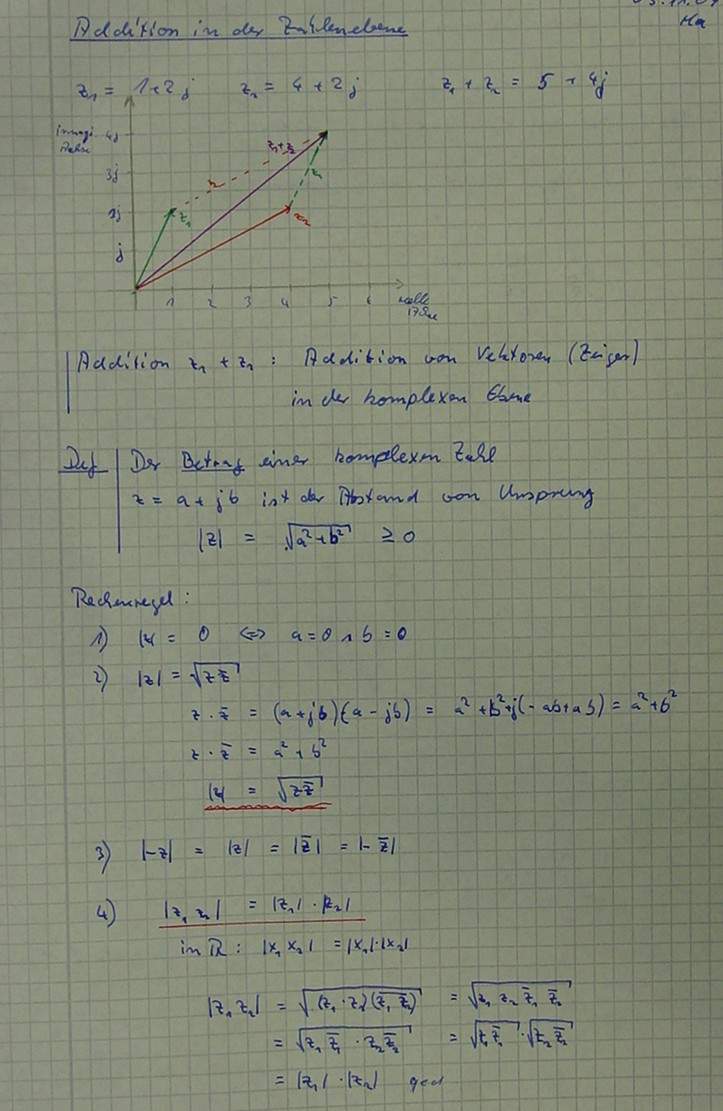 Ma
Addition in der Zahlenebene
z₁ = 1+2j z₂ = 4+2j z₁ + z₂ = 5 + 4j
imagi 4j
Achse
3j
2j
j
z₁+z₂
z₂
z₁
z₁
z₂
1 2 3 4 5 6 reelle
Achse
Addition z₁ + z₂ : Addition von Vektoren (Zeiger)
in der komplexen Ebene
Def Der Betrag einer komplexen Zahl
z = a + jb ist der Abstand von Ursprung
|z| = √(a²+b²) ≥ 0
Rechenregel:
1) |z| = 0 <=> a=0 ∧ b=0
2) |z| = √(z z̄)
z · z̄ = (a+jb)(a-jb) = a²+b²+j(-ab+ab) = a²+b²
z · z̄ = a² + b²
|z| = √(z z̄)
3) |-z| = |z| = |z̄| = |-z̄|
4) |z₁ z₂| = |z₁| · |z₂|
in ℝ: |x₁ x₂| = |x₁|·|x₂|
|z₁ z₂| = √((z₁ · z₂)(z̄₁ z̄₂)) = √(z₁ z₂ z̄₁ z̄₂)
= √(z₁ z̄₁ · z₂ z̄₂) = √(z₁ z̄₁) · √(z₂ z̄₂)
= |z₁| · |z₂| qed